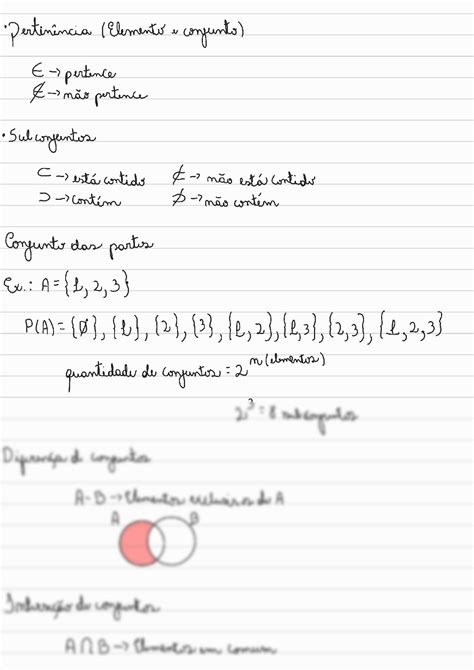 • Pertinência (Elemento e conjunto)
∈ → pertence
∉ → não pertence
• Subconjuntos
⊂ → está contido ⊄ → não está contido
⊃ → contém ⊅ → não contém
Conjunto das partes
Ex.: A = {1, 2, 3}
P(A) = {Ø}, {1}, {2}, {3}, {1, 2}, {1, 3}, {2, 3}, {1, 2, 3}
quantidade de conjuntos = 2^n(elementos)
2^3 = 8 subconjuntos
Diferença de conjuntos
A - B → Elementos exclusivos de A
A B
Interseção de conjuntos
A ∩ B → Elementos em comum